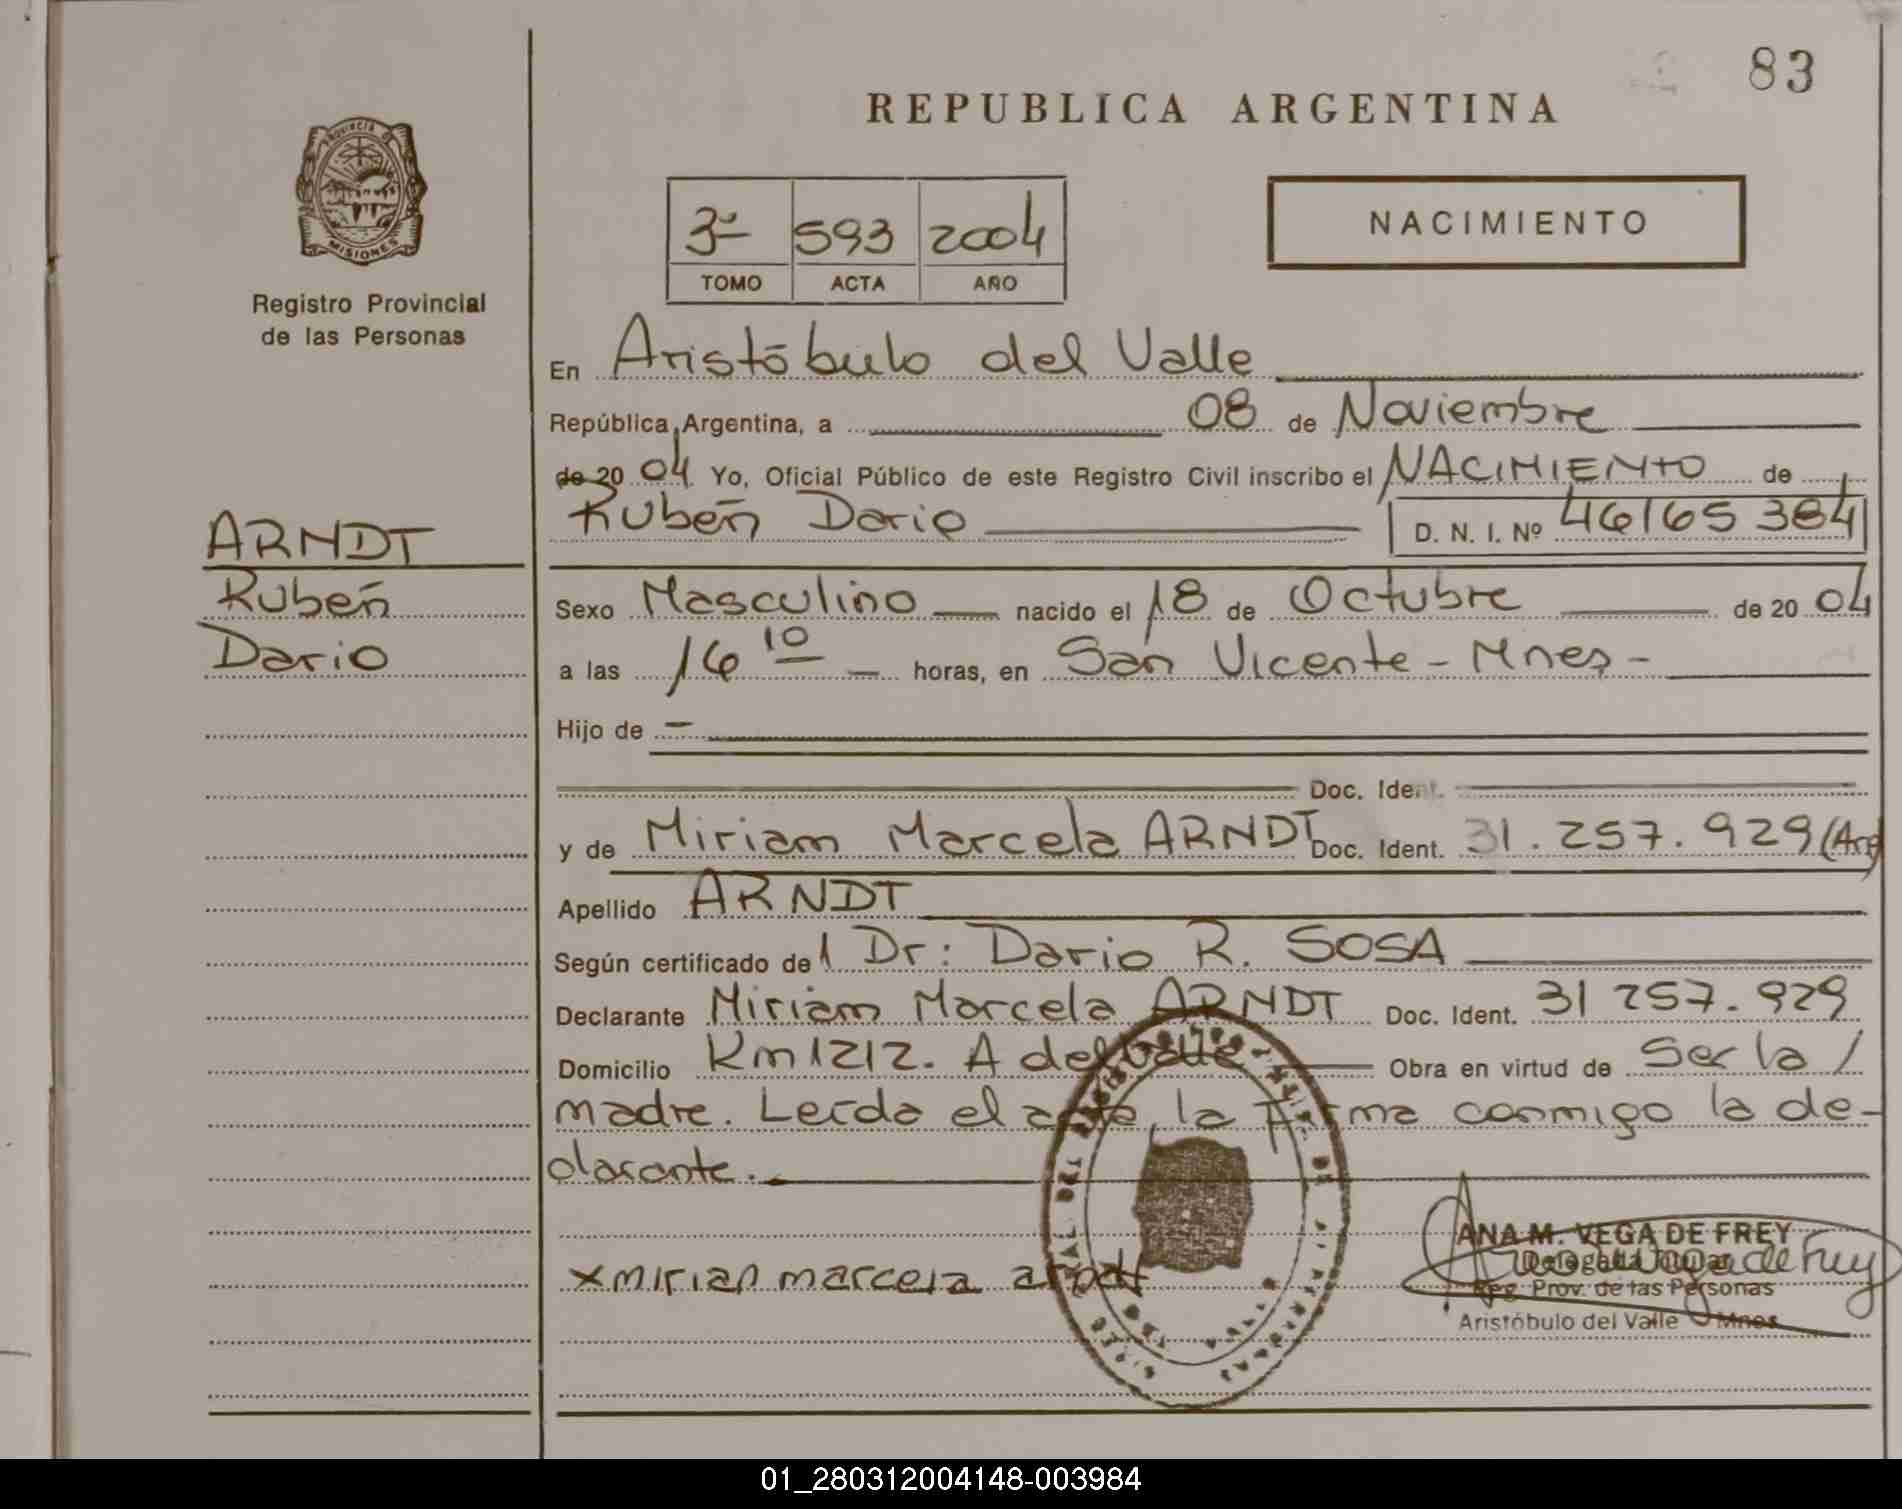 83
REPUBLICA ARGENTINA
PROVINCIA DE
MISIONES
Registro Provincial
de las Personas
3º 593 2004
TOMO ACTA AÑO
NACIMIENTO
En Aristóbulo del Valle
República Argentina, a 08 de Noviembre
de 20 04 Yo, Oficial Público de este Registro Civil inscribo el NACIMIENTO de
Rubén Dario D. N. I. Nº 46165384
ARNDT
Rubén
Dario
Sexo Masculino nacido el 18 de Octubre de 20 04
a las 16 10 horas, en San Vicente - Mnes -
Hijo de -
Doc. Ident.
y de Miriam Marcela ARNDT Doc. Ident. 31.257.929 (Arg)
Apellido ARNDT
Según certificado de l Dr: Dario R. SOSA
Declarante Miriam Marcela ARNDT Doc. Ident. 31 257.929
Domicilio Km 1212. A del Valle Obra en virtud de Ser la /
madre. Leída el acta, la firma conmigo la de-
clarante.
x mirian marcela arndt
ANA M. VEGA DE FREY
Delegada Titular
Reg. Prov. de las Personas
Aristóbulo del Valle Mnes
01_280312004148-003984